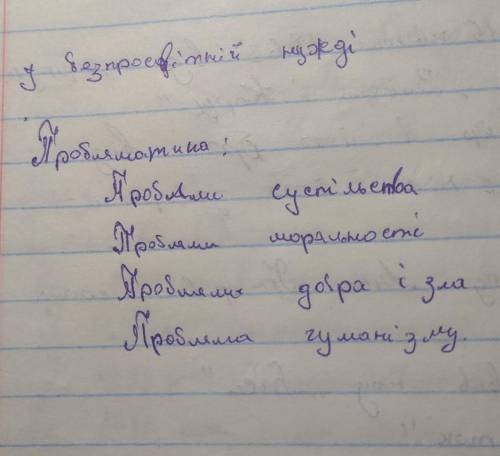 у безпросвітній нужді
Проблематика:
Проблеми суспільства
Проблеми моральності
Проблеми добра і зла
Проблема гуманізму.